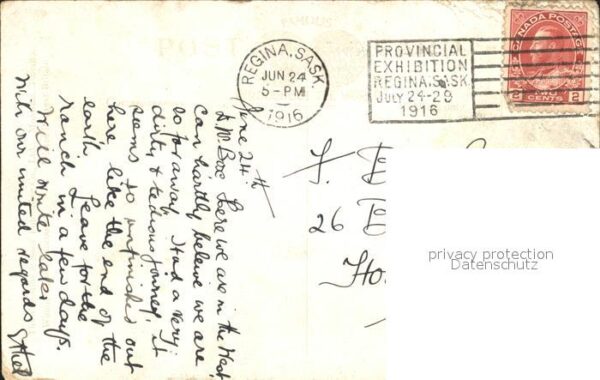 REGINA, SASK.
JUN 24
5-PM
1916
PROVINCIAL
EXHIBITION
REGINA, SASK
JULY 24-29
1916
CANADA POSTAGE
2 CENTS 2
June 24th
D Mr Box Here we are in the West
Can hardly believe we are
so far away. Had a very
dirty & tedious journey, it
seems so unfinished out
here, like the end of the
earth. Leave for the
ranch in a few days.
Will write later
With our united regards Ethel
26
privacy protection
Datenschutz